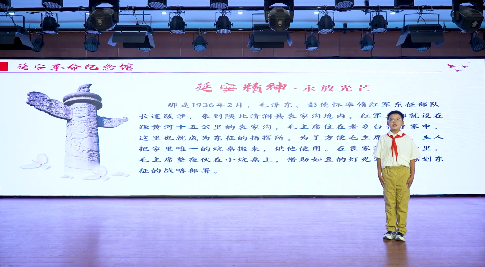 延安革命纪念馆
延安精神·永放光芒
那是1936年2月，毛泽东、彭德怀率领红军东征部队
长途跋涉，来到陕北清涧县袁家沟境内，
在距黄河十五公里的袁家沟，毛主席住在
这里也就成为东征的指挥所。为了方便毛主席
把家里唯一的炕桌搬来，供他使用。在袁家
毛主席整夜伏在小炕桌上，借助如豆的灯光
征的战略部署。